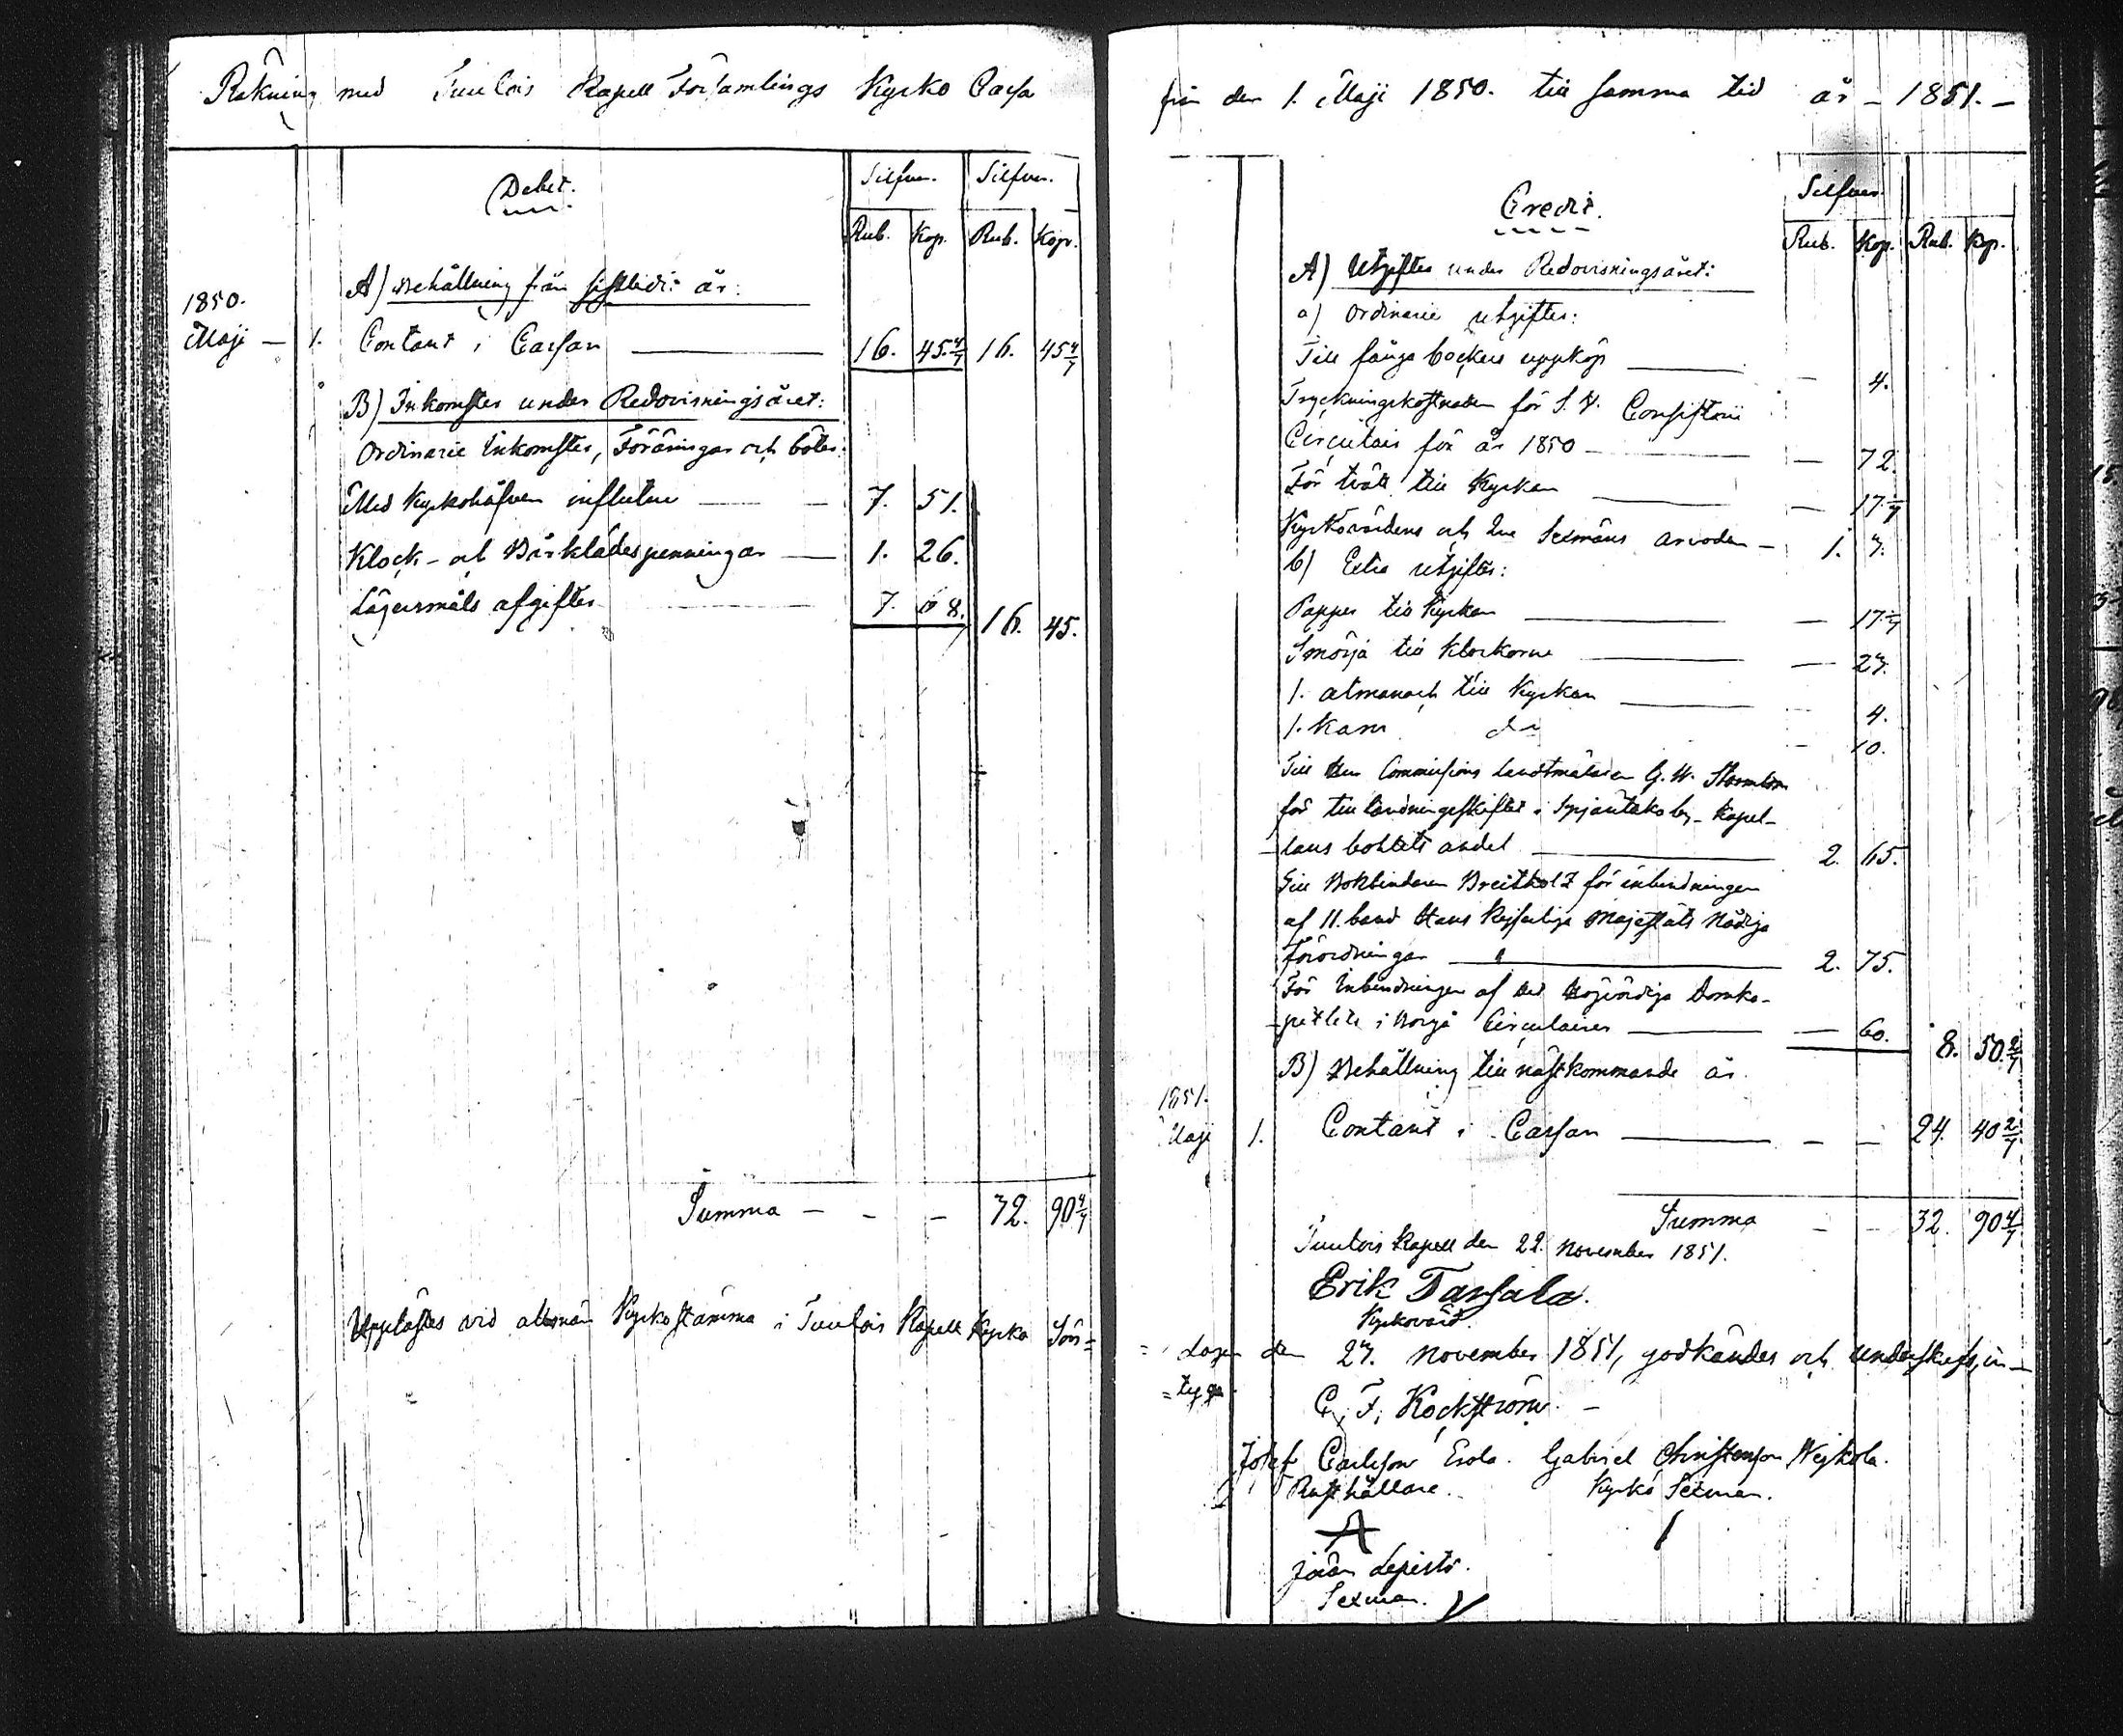 Räkning med Tuulois Kapell Församlings Kyrko Cassa
Debet.
Silfver. Silfver.
Rub. Kop. Rub. Kop.
A) Behållning från sistlidit år:
1850.
Maji — 1. Contant i Cassan 16. 45 4/7 16. 45 4/7
B) Inkomster under Redovisningsåret:
Ordinarie Inkomster, Föräringar och böter:
Med Kyrkohåfven influtne 7. 51.
Klock- och Bårklädespenningar 1. 26.
Lägersmåls afgifter 7. 68. 16. 45.
Summa - - - 32. 90 4/7
Upplästes vid allmän Kyrkostämma i Tuulois Kapell Kyrka Sön=
från den 1. Maji 1850. till samma tid år - 1851. -
Credit.
Silfver.
Rub. Kop. Rub. Kop.
A) Utgifter under Redovisningsåret:
a) Ordinarie utgifter:
Till fånga böckers uppköp — 4.
Tryckningskostnaden för S. V. Consistorii
Circulair för år 1850 — 72.
För tvätt till Kyrkan — 17 1/7
Kyrkovärdens och Sexmäns arvoden — 1. 4.
b) Extra utgifter:
Papper till Kyrkan — 17 1/7
Smörja till Klockorne — 24.
1. almanach till Kyrkan — 4.
1. Kam do — 10.
Till Commissions landtmätaren G. W.
för tillandningsskiftet i Syrjäntaka by - Kapel-
lans bohlets andel 2. 65.
Till Bokbindaren Breitholtz för inbindningen
af 11. band Hans Kejserliga Majestäts Nådiga
Förordningar 2. 75.
För Inbindningen af det Högvördiga Domka-
pitlets i Borgå Circulairer — 60. 8. 50 2/7
B) Behållning till nästkommande år.
1851.
Maji 1. Contant i Cassan - - 24. 40 2/7
Summa - - 32. 90 4/7
Tuulois Kapell den 22. November 1851.
Erik Tansala.
Kyrkovärd.
=dagen den 24. November 1851, godkändes och underskrefs, in-
=tyga
C. F. Kockström. -
Josef Carlsson Erola. Gabriel Christensson Wejkola.
Rusthållare. Kyrko Sexman.
Johan Lepistö.
Sexman.